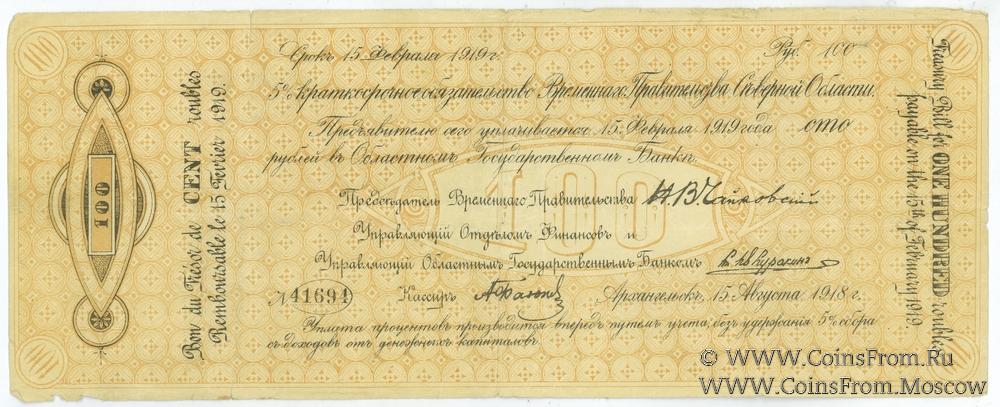 Срокъ 15 Февраля 1919 г. Руб. 100
5% краткосрочное обязательство Временнаго Правительства Сѣверной Области.
Предъявителю сего уплачивается 15 Февраля 1919 года сто
рублей въ Областномъ Государственномъ Банкѣ.
100
Предсѣдатель Временнаго Правительства Н. В. Чайковскій
Управляющій Отдѣломъ Финансовъ и
Управляющій Областнымъ Государственнымъ Банкомъ Куракинъ
№ 41694 Кассиръ Архангельскъ, 15 Августа 1918 г.
Уплата процентовъ производится впередъ путемъ учета, безъ удержанія 5% сбора
съ доходовъ отъ денежныхъ капиталовъ.
100
Bon du Trésor de CENT roubles
Remboursable le 15 Fevrier 1919.
Treasury Bill for ONE HUNDRED roubles
payable on the 15th of February 1919.
© WWW.CoinsFrom.Ru
WWW.CoinsFrom.Moscow